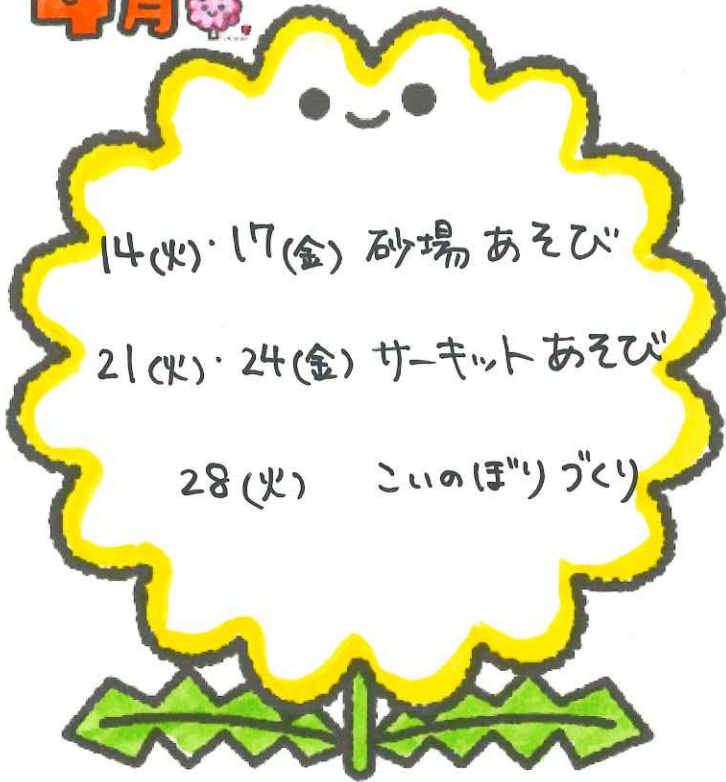 4月
14(火)・17(金) 砂場あそび
21(火)・24(金) サーキットあそび
28(火) こいのぼりづくり